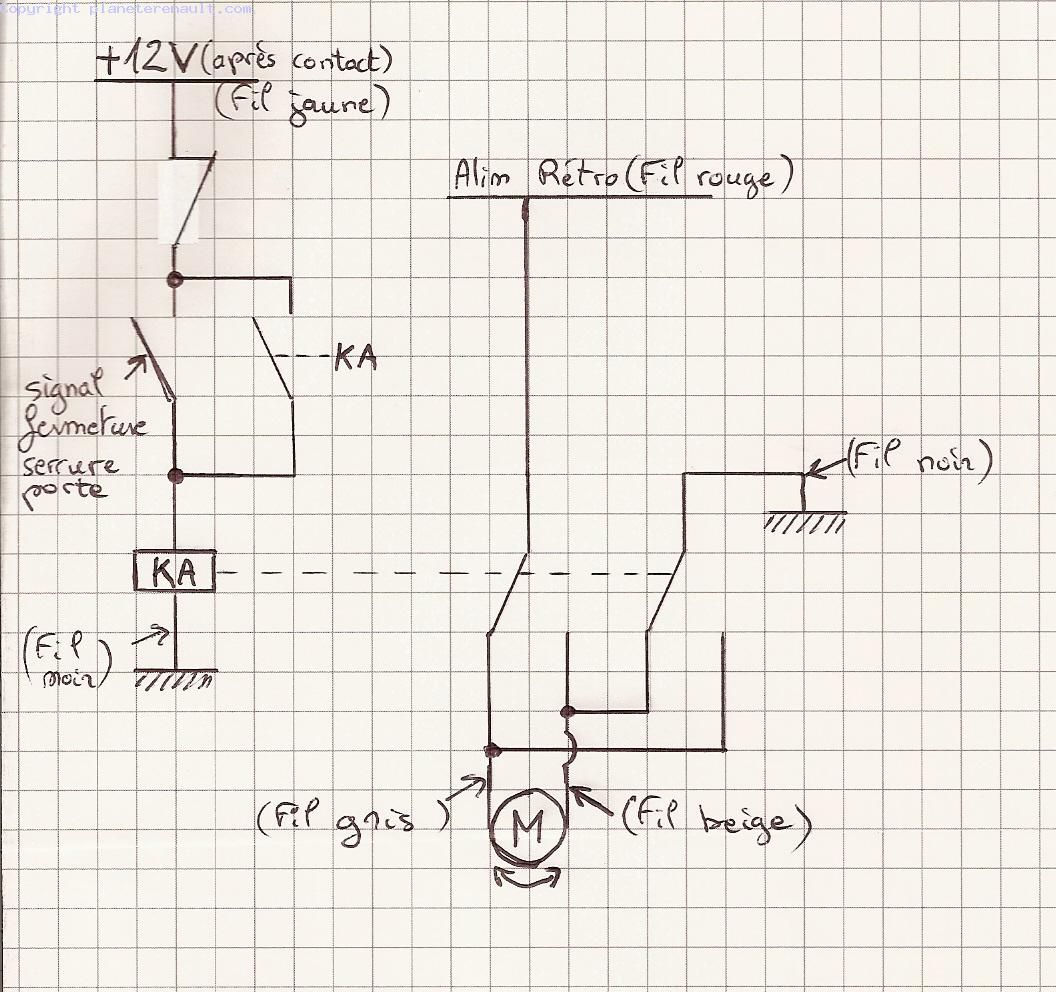 Copyright planeterenault.com
+12V (après contact)
(Fil jaune)
Alim Rétro (Fil rouge)
KA
signal
fermeture
serrure
porte
(Fil noir)
KA
(Fil
noir)
(Fil gris)
(Fil beige)
M